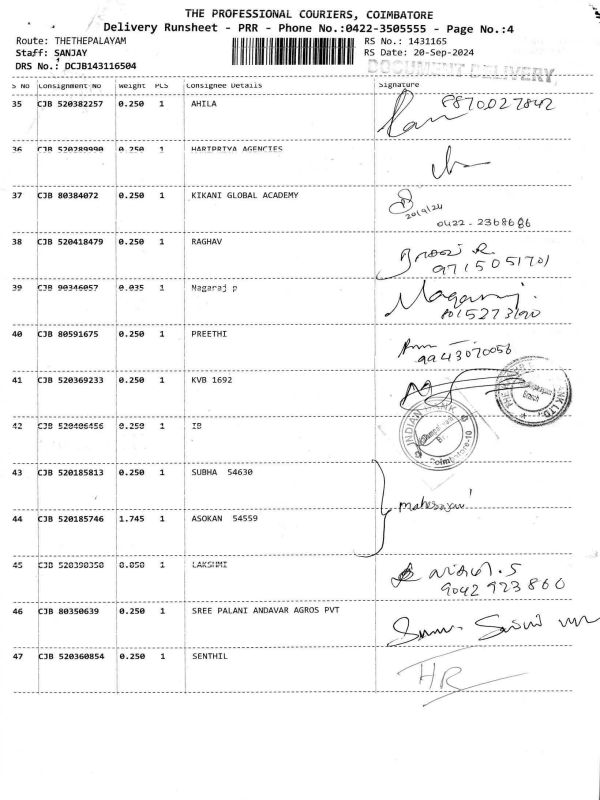 THE PROFESSIONAL COURIERS, COIMBATORE
Delivery Runsheet - PRR - Phone No.:0422-3505555 - Page No.:4
Route: THETHEPALAYAM RS No.: 1431165
Staff: SANJAY RS Date: 20-Sep-2024
DRS No.: DCJB143116504
DOCUMENT DELIVERY
S No Consignment No Weight PCS Consignee Details Signature
35 CJB 520382257 0.250 1 AHILA 8870027842
36 CJB 520289990 0.250 1 HARIPRIYA AGENCIES
37 CJB 80384072 0.250 1 KIKANI GLOBAL ACADEMY
20/9/24
0422-2368686
38 CJB 520418479 0.250 1 RAGHAV
9715051701
39 CJB 90346057 0.035 1 Nagaraj p Nagaraj.
8015273190
40 CJB 80591675 0.250 1 PREETHI
9943070056
41 CJB 520369233 0.250 1 KVB 1692
42 CJB 520406456 0.250 1 IB
INDIAN BANK
Coimbatore-10
43 CJB 520185813 0.250 1 SUBHA 54630
maheswari
44 CJB 520185746 1.745 1 ASOKAN 54559
45 CJB 520390350 0.050 1 LAKSHMI
9042923860
46 CJB 80350639 0.250 1 SREE PALANI ANDAVAR AGROS PVT
47 CJB 520360854 0.250 1 SENTHIL HR